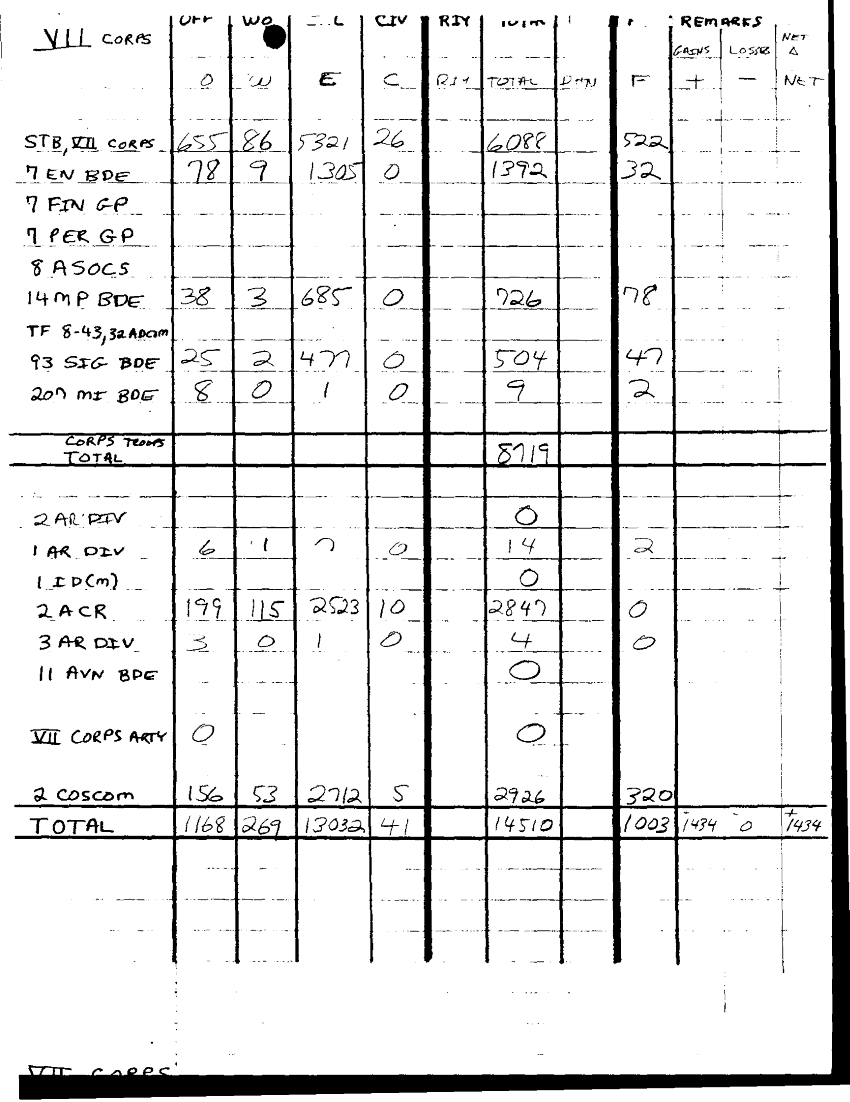 VII CORPS OFF WO CIV RIY REMARKS
GAINS LOSSES NET Δ
O W E C RIY TOTAL F + - NET
STB, VII CORPS 655 86 5321 26 6088 522
7 EN BDE 78 9 1305 0 1392 32
7 FIN GP
7 PER GP
8 ASOCS
14 MP BDE 38 3 685 0 726 78
TF 8-43, 32 ADCOM
93 SIG BDE 25 2 477 0 504 47
207 MI BDE 8 0 1 0 9 2
CORPS TROOPS
TOTAL 8719
2 AR DIV 0
1 AR DIV 6 1 7 0 14 2
1 ID(M) 0
2 ACR 199 115 2523 10 2847 0
3 AR DIV 3 0 1 0 4 0
11 AVN BDE 0
VII CORPS ARTY 0 0
2 COSCOM 156 53 2712 5 2926 320
TOTAL 1168 269 13032 41 14510 1003 1434 0 +1434
VII CORPS